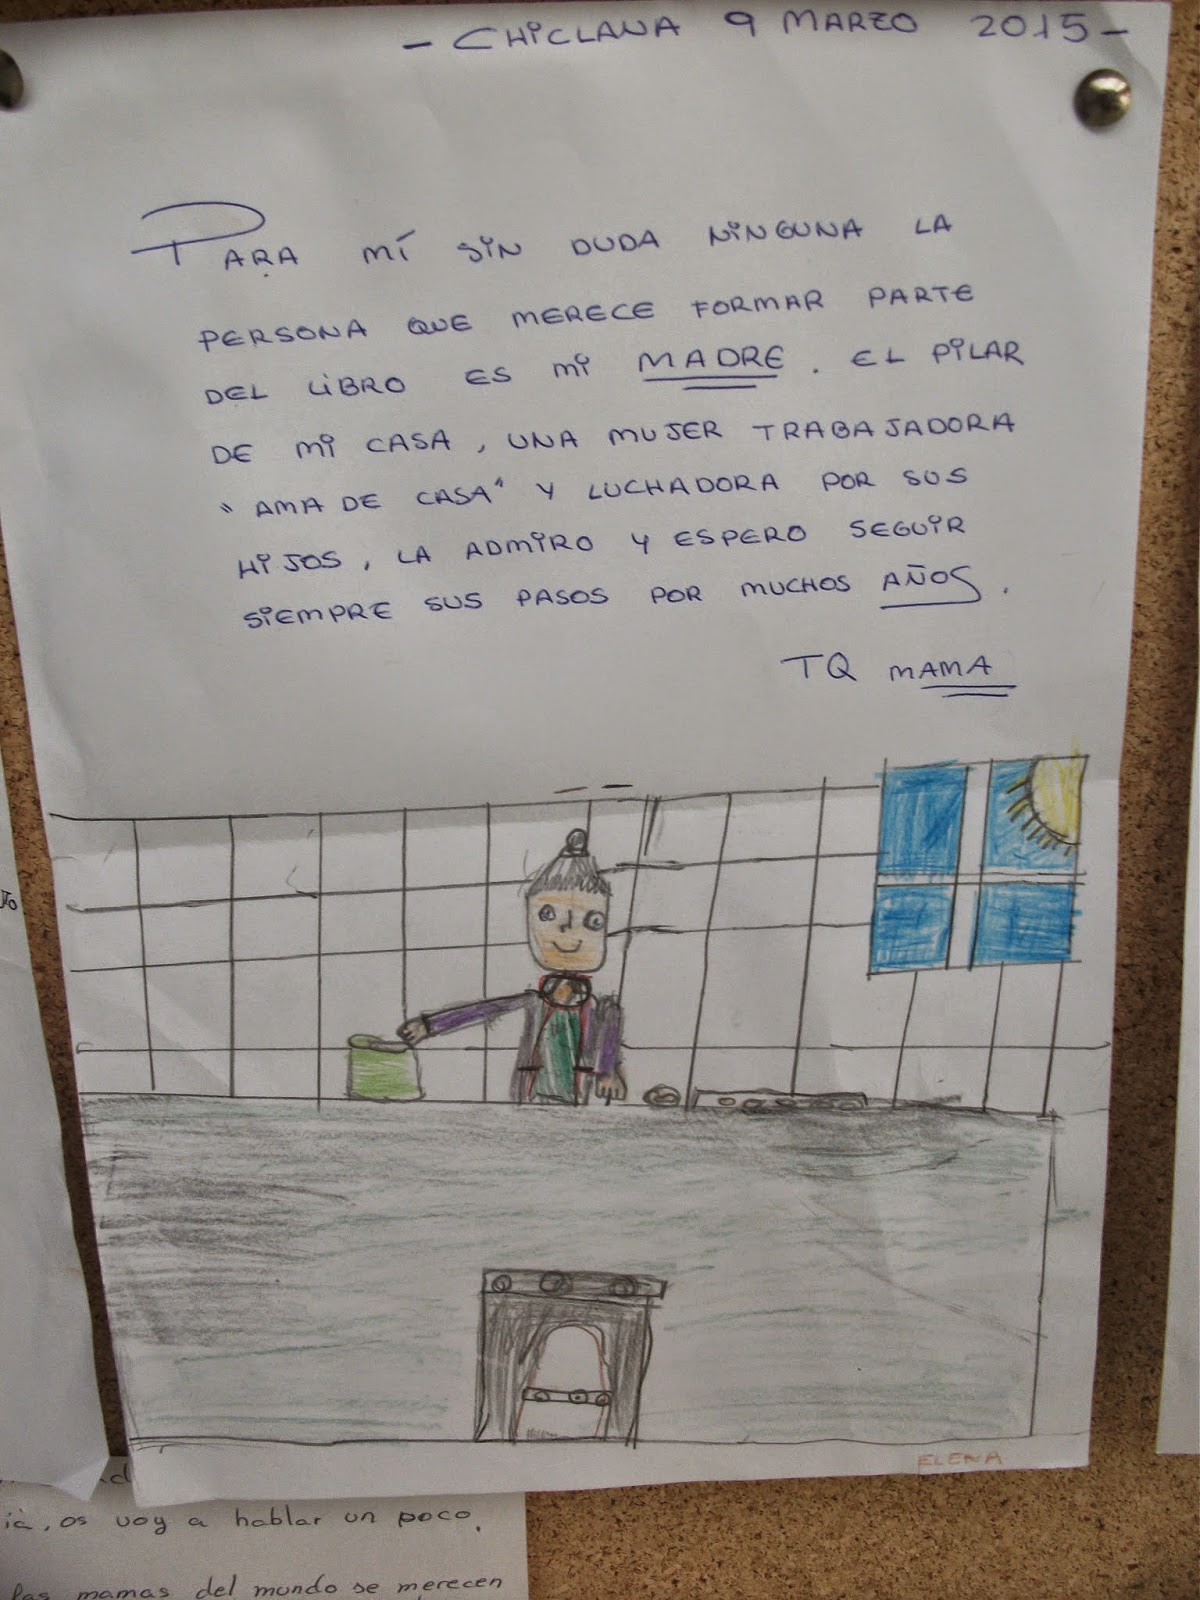 - CHICLANA 9 MARZO 2015 -
PARA MÍ SIN DUDA NINGUNA LA
PERSONA QUE MERECE FORMAR PARTE
DEL LIBRO ES MI MADRE. EL PILAR
DE MI CASA, UNA MUJER TRABAJADORA
"AMA DE CASA" Y LUCHADORA POR SUS
HIJOS, LA ADMIRO Y ESPERO SEGUIR
SIEMPRE SUS PASOS POR MUCHOS AÑOS.
TQ MAMA
ELENA
, os voy a hablar un poco.
mamas del mundo se merecen